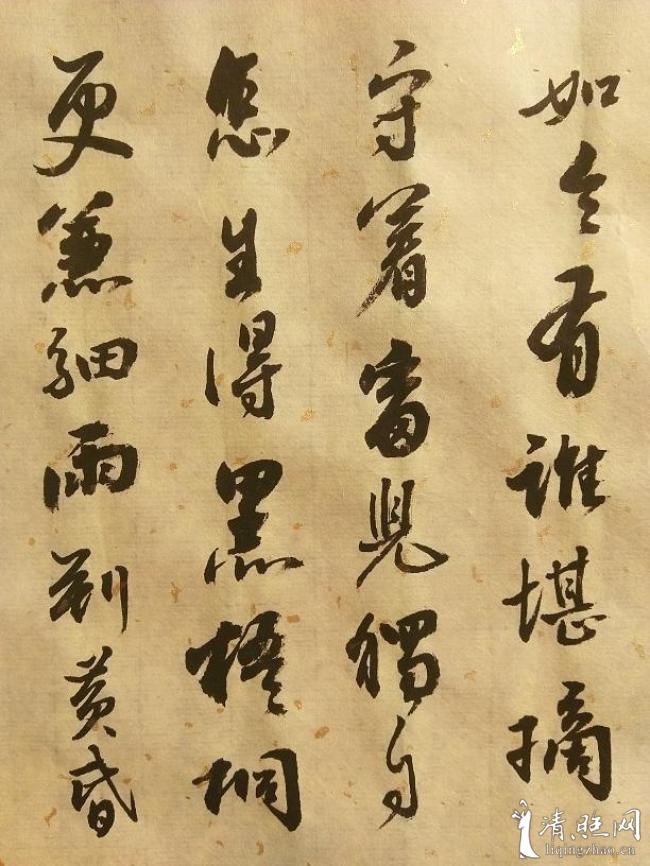 如今有誰堪摘
守着窗兒獨自
怎生得黑梧桐
更兼細雨到黃昏
清照网
liqingzhao.cn